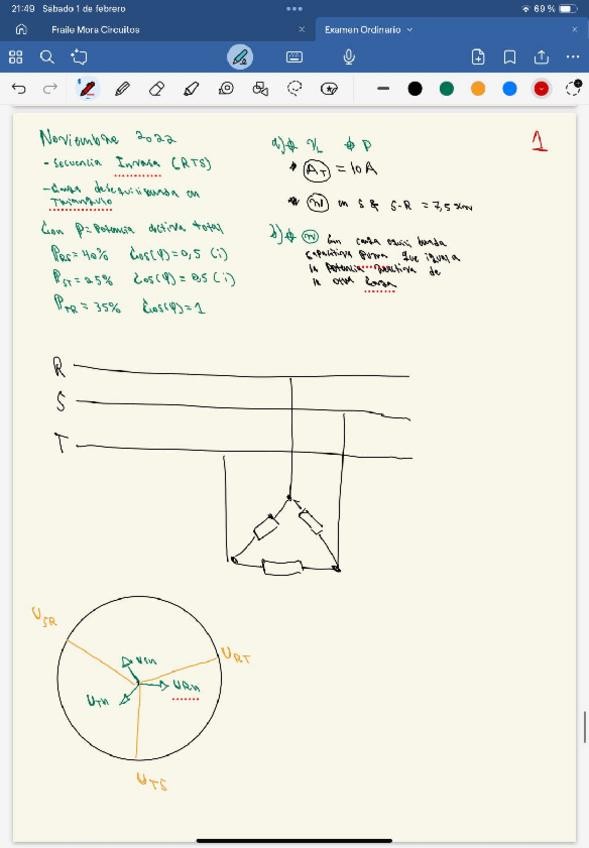 21:49 Sábado 1 de febrero
69 %
Fraile Mora Circuitos
Examen Ordinario
Noviembre 2022
- Secuencia Inversa (RTS)
- Carga desequilibrada en
Triángulo
Con P= Potencia activa total
PRS= 40% Cos(φ)=0,5 (i)
PST= 25% Cos(φ)= 0,5 (i)
PTR= 35% Cos(φ)=1
a) VL P
AT = 10A
W en S & S-R = 7,5 kW
b) W Con carga equilibrada
capacitiva pura que iguala
la potencia reactiva de
la otra carga
1
R
S
T
USR
URT
USn
URn
UTn
UTS